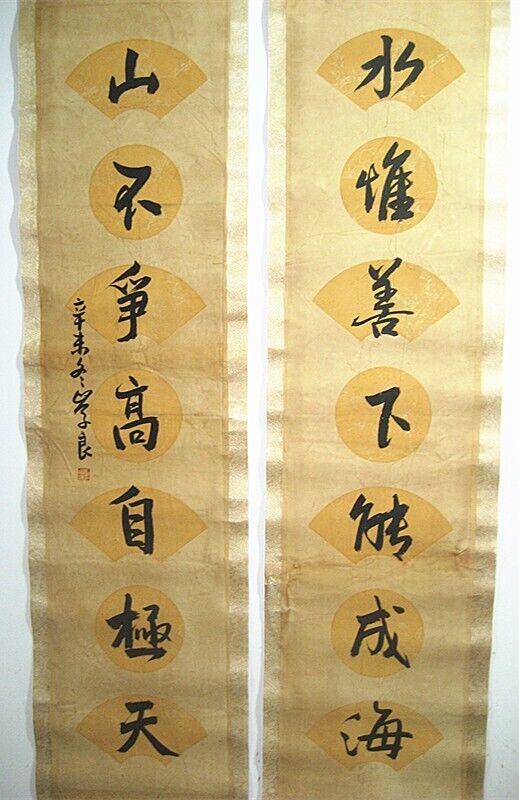 水惟善下能成海
山不爭高自極天
辛未冬學良